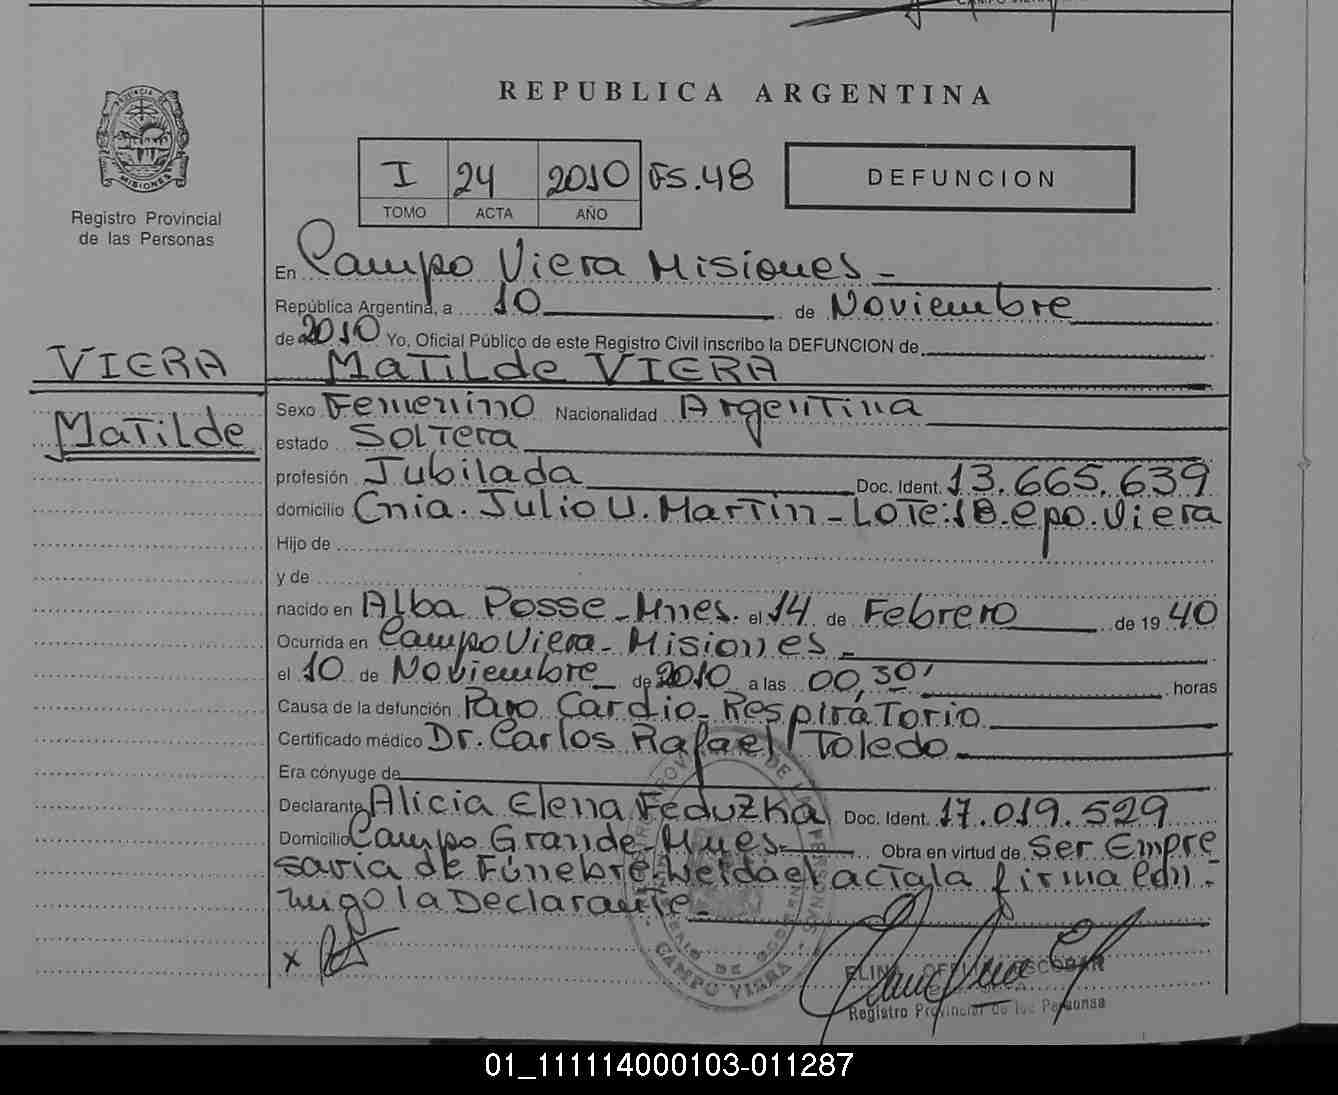 REPUBLICA ARGENTINA
PROVINCIA DE
MISIONES
Registro Provincial
de las Personas
I 24 2010 FS.48
TOMO ACTA AÑO
DEFUNCION
En Campo Viera Misiones
República Argentina, a 10 de Noviembre
de 2010 Yo, Oficial Público de este Registro Civil inscribo la DEFUNCION de
VIERA
Matilde VIERA
Matilde
Sexo Femenino Nacionalidad Argentina
estado Soltera
profesión Jubilada Doc. Ident. 13.665.639
domicilio Cnia. Julio U. Martin - Lote: 18. Cpo. Viera
Hijo de
y de
nacido en Alba Posse - Mnes. el 14 de Febrero de 19 40
Ocurrida en Campo Viera - Misiones -
el 10 de Noviembre de 2010 a las 00,30' horas
Causa de la defunción Paro Cardio-Respiratorio
Certificado médico Dr. Carlos Rafael Toledo
Era cónyuge de
Declarante Alicia Elena Feduzka Doc. Ident. 17.019.529
Domicilio Campo Grande - Mnes - Obra en virtud de Ser Empre
saria de Fúnebre. Leida el acta la firma con-
migo la Declarante -
x
CAMPO VIERA
ESCOBAR
Registro Provincial de las Personas
01_111114000103-011287